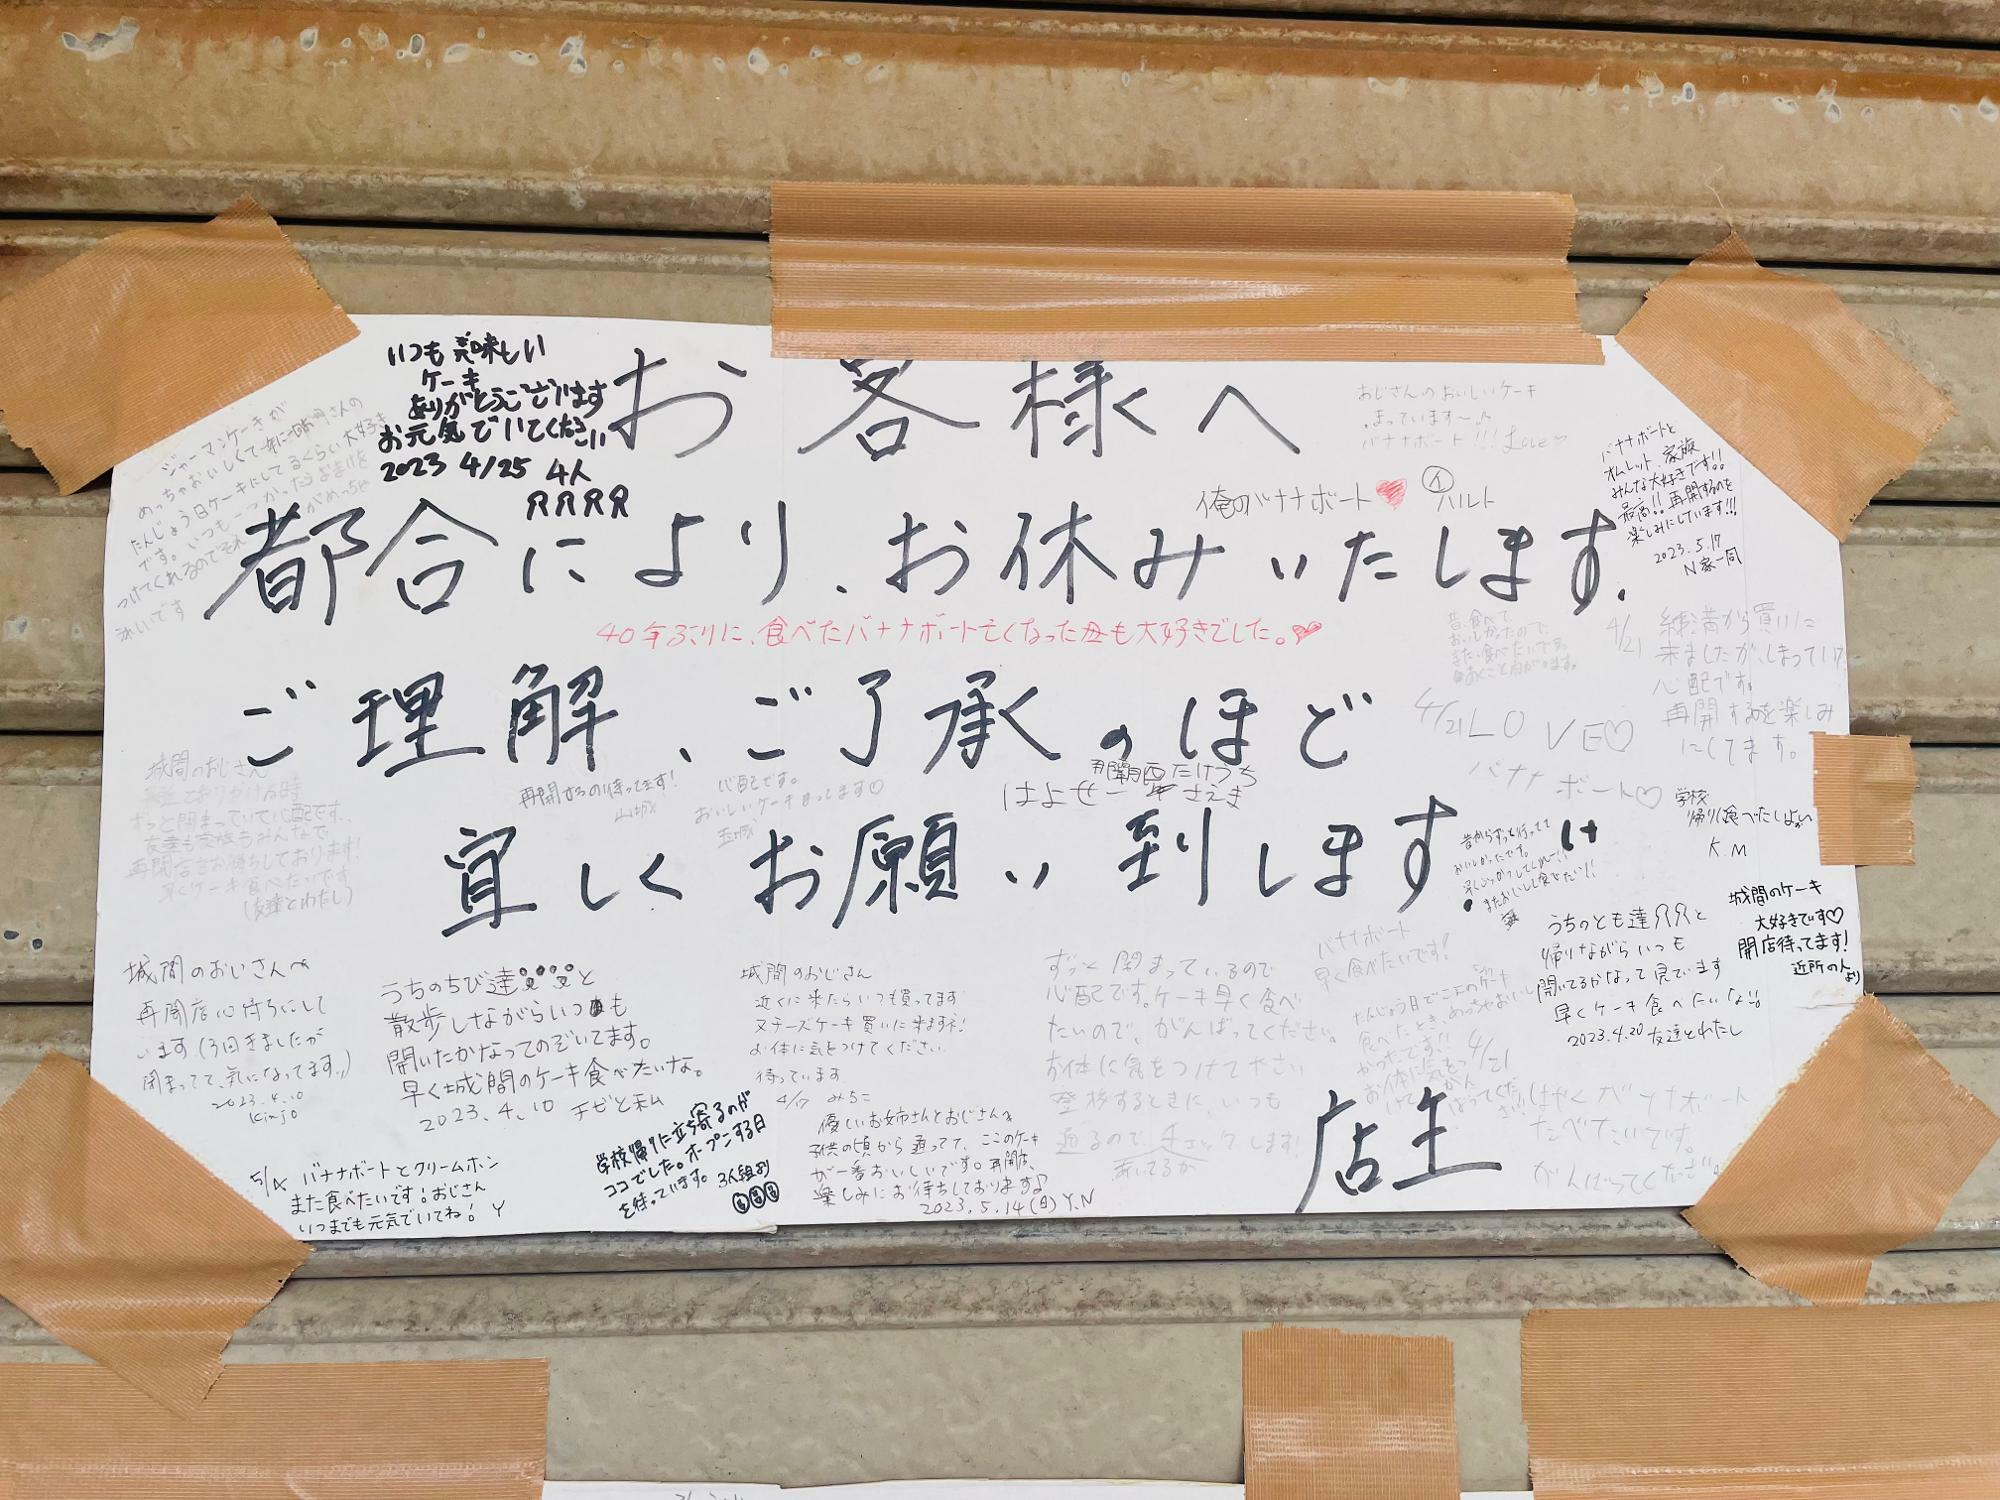 お客様へ
都合により、お休みいたします.
ご理解、ご了承のほど
宜しくお願い到します
店主
いつも美味しい
ケーキ
ありがとうございます
お元気でいてください
2023 4/25 4人
ジャーマンケーキが
おじさんのおいしいケーキ
まっています〜♪
バナナボート!!! Love
俺のバナナボート
ハルト
バナナボートと
オムレット、家族
みんな大好きです!!
最高!! 再開するのを
楽しみにしています!!!
2023.5.17
N家一同
40年ぶりに、食べたバナナボート亡くなった母も大好きでした。
昔、食べて、
おいしかったので、
また、食べたいです。
4/21
練馬から買いに
来ましたが、しまっていて
心配です。
再開するを楽しみ
にしてます。
4/21 LOVE♡
バナナ
ボート♡
学校
帰り食べたしよ
K.M
城間のケーキ
大好きです♡
開店待ってます!
近所の人より
城間のおじさん
ずっと閉まっていて心配です。
友達も家族もみんなで
再開店をお待ちしております!
早くケーキ食べたいです
(友達とわたし)
再開するの待ってます!
山城
心配です。
おいしいケーキまってます♡
はよせー
城間のおじさんへ
再開店心待ちにして
います(3回きましたが
閉まってて、気になってます。)
2023.4.10
Kinjo
うちのちび達と
散歩しながらいつも
開いたかなってのぞいてます。
早く城間のケーキ食べたいな。
2023.4.10 チビと私
城間のおじさん
近くに来たらいつも買ってます
又チーズケーキ買いに来ますネ!
お体に気をつけてください
待っています
4/17 みちこ
ずっと閉まっているので
心配です。ケーキ早く食べ
たいので、がんばってください。
お体に気をつけて下さい
登校するときに、いつも
通るので、チェックします!
あいてるか
バナナボート
早く食べたいです!
うちのとも達と
帰りながらいつも
開いてるかなって見でいます
早くケーキ食べたいなぁ。
2023.4.20 友達とわたし
はやくバナナボート
たべたいです。
がんばってください。
5/4 バナナボートとクリームホン
また食べたいです!おじさん
いつまでも元気でいてね! Y
学校帰りに立ち寄るのが
ココでした。オープンする日
を待っています。 3人組より
優しいお姉さんとおじさんへ
子供の頃から通ってて、ここのケーキ
が一番おいしいです。再開店、
楽しみにお待ちしております♪
2023.5.14(日) Y.N